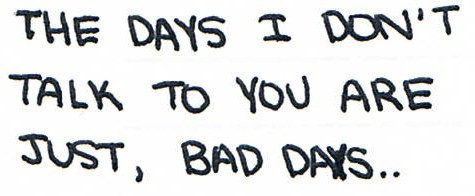 THE DAYS I DON'T
TALK TO YOU ARE
JUST, BAD DAYS..